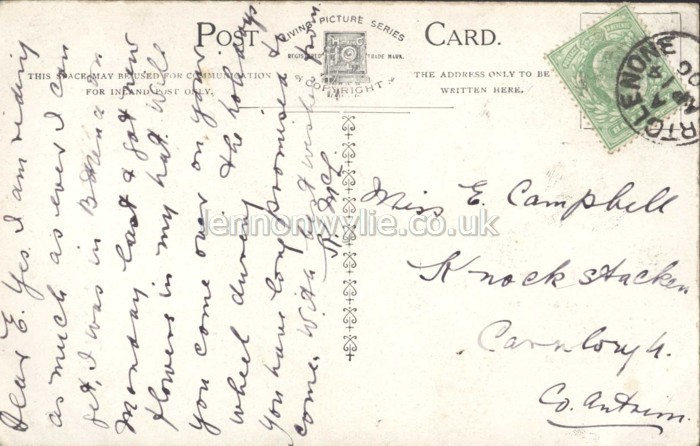 POST CARD.
LIVING PICTURE SERIES
REGISTERED TRADE MARK.
COPYRIGHT
THIS SPACE MAY BE USED FOR COMMUNICATION
FOR INLAND POST ONLY.
THE ADDRESS ONLY TO BE
WRITTEN HERE.
Dear E. Yes I am riding
as much as ever I can
get, I was in
Monday last & got new
flowers in my hat. Will
you come over on your
wheel during the holidays
you have long promised to
come. With best wishes from
Miss E. Campbell
Knockstacken
Carnlough.
Co. Antrim.
RTGLENONE
lennonwylie.co.uk